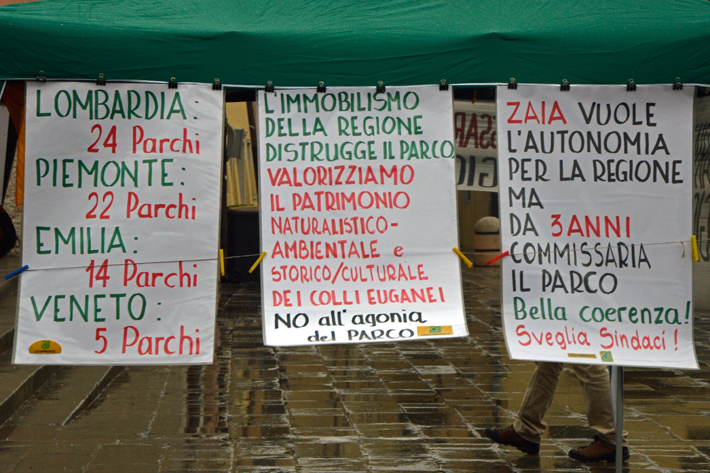 LOMBARDIA:
24 Parchi
PIEMONTE:
22 Parchi
EMILIA:
14 Parchi
VENETO:
5 Parchi
L'IMMOBILISMO
DELLA REGIONE
DISTRUGGE IL PARCO
VALORIZZIAMO
IL PATRIMONIO
NATURALISTICO-
AMBIENTALE e
STORICO/CULTURALE
DEI COLLI EUGANEI
NO all'agonia
del PARCO
ZAIA VUOLE
L'AUTONOMIA
PER LA REGIONE
MA
DA 3 ANNI
COMMISSARIA
IL PARCO
Bella coerenza!
Sveglia Sindaci!